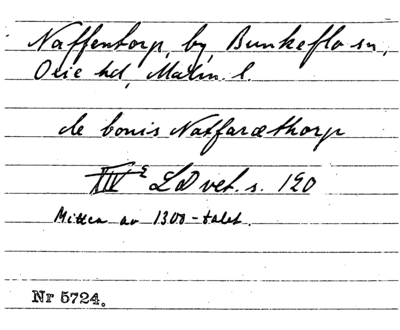 Naffentorp, by, Bunkeflo sn,
Oxie hd, Malm. l.
de bonis Natfaræthorp
XIV 2 LD vet. s. 120
Mitten av 1300-talet.
Nr 5724.